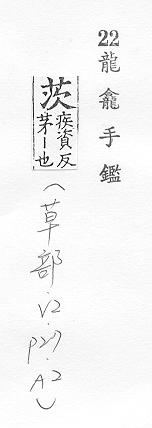 22 龍龕手鑑
茨 疾資反
茅丨也
(草部.V2.P27.A2)